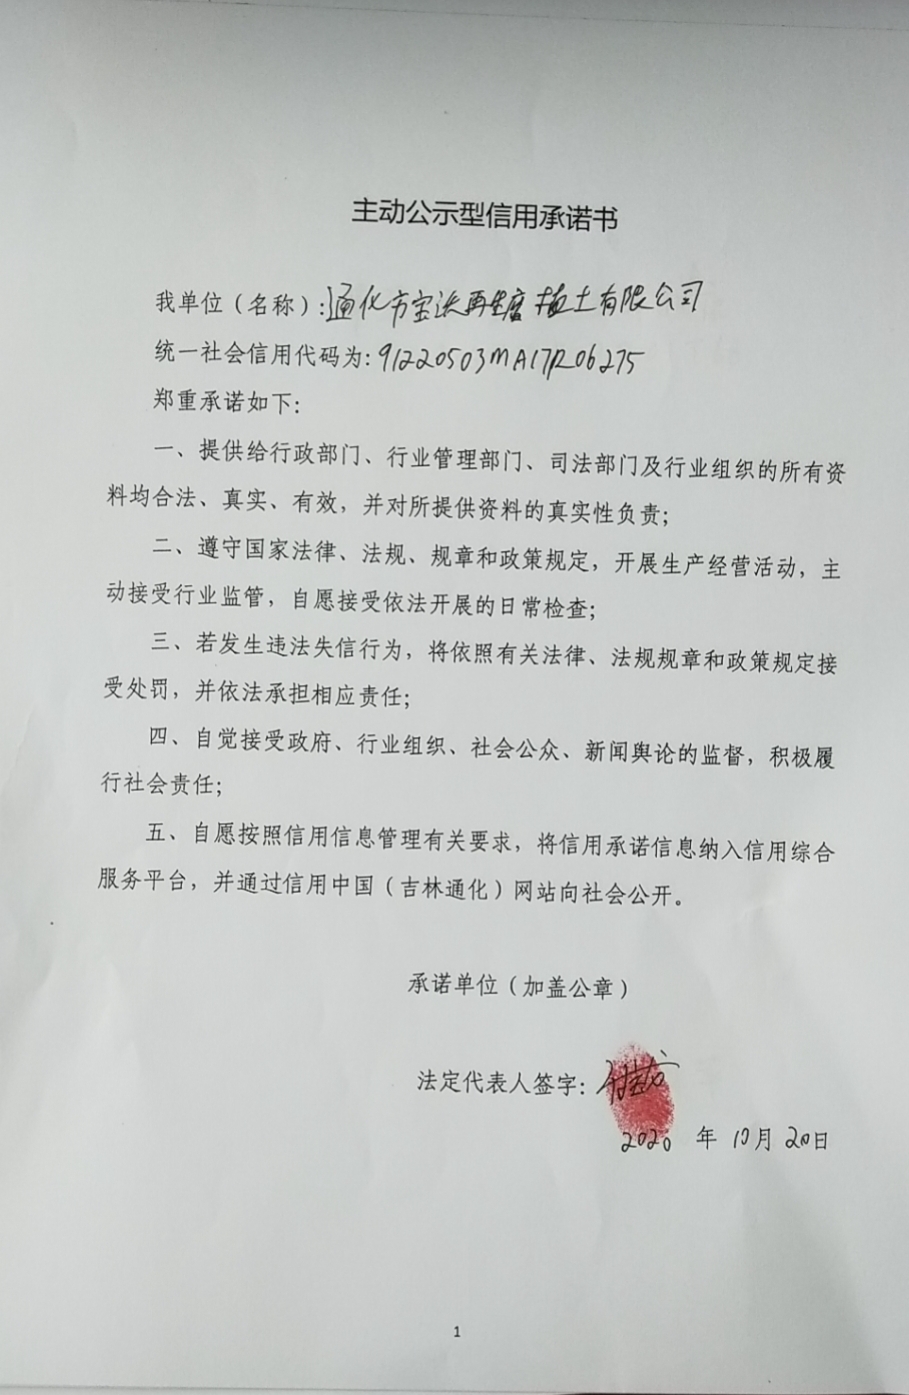 主动公示型信用承诺书
我单位（名称）:通化市宝沃再生 植土有限公司
统一社会信用代码为: 91220503MA17R06275
郑重承诺如下:
一、提供给行政部门、行业管理部门、司法部门及行业组织的所有资
料均合法、真实、有效，并对所提供资料的真实性负责；
二、遵守国家法律、法规、规章和政策规定，开展生产经营活动，主
动接受行业监管，自愿接受依法开展的日常检查；
三、若发生违法失信行为，将依照有关法律、法规规章和政策规定接
受处罚，并依法承担相应责任；
四、自觉接受政府、行业组织、社会公众、新闻舆论的监督，积极履
行社会责任；
五、自愿按照信用信息管理有关要求，将信用承诺信息纳入信用综合
服务平台，并通过信用中国（吉林通化）网站向社会公开。
承诺单位（加盖公章）
法定代表人签字:
2020 年 10月 20日
1